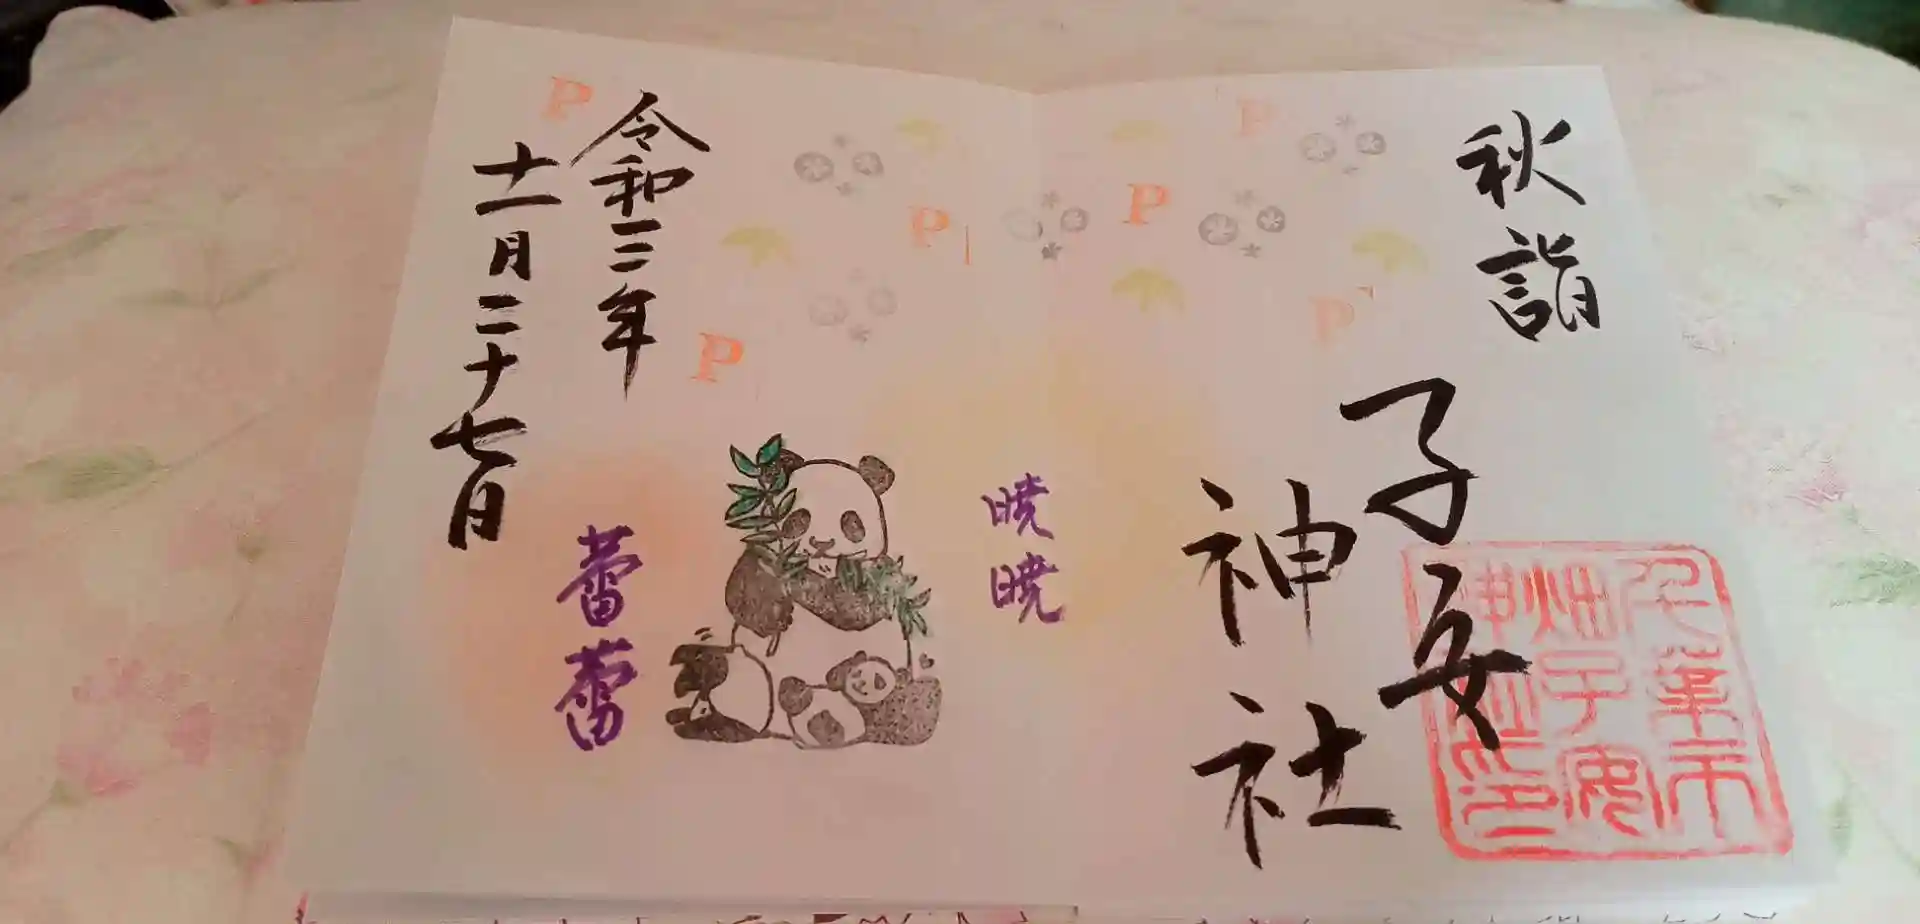 秋詣
子安
神社
千葉市
畑子安
神社印
暁暁
蕾蕾
令和三年
十一月二十七日
P
P
P
P
P
P